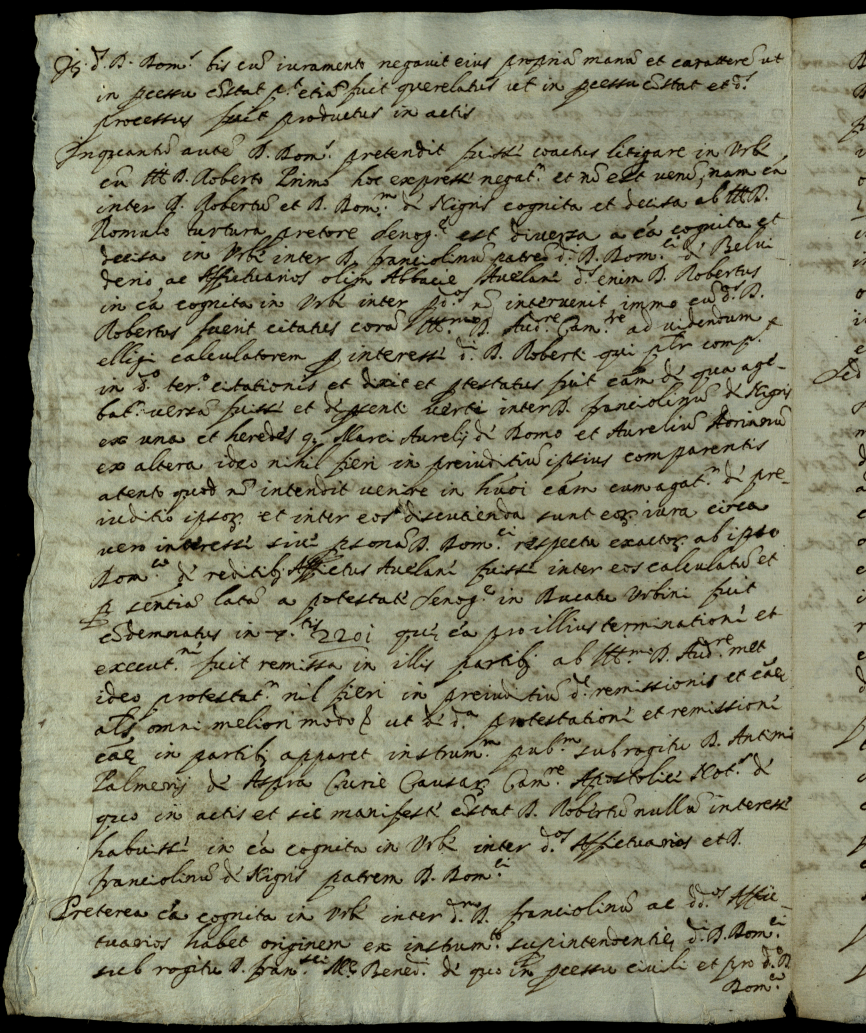 It. d. D. Dom.s bis cū iuramento negavit eius propriā manū et carattere ut
in pcessu cōstat p.t etiā fuit querelatus ut in pcessu cōstat et d.s
processus fuit productus in actis
Inquantū autē D. Dom.s pretendit fuisse coactus litigare in Urbe
cū Ill D. Roberto Primo hoc expresse negat.r et nō est verū, nam cā
inter D. Robertū et D. Dom.m de Nigris cognita et decisa ab Ill D.
Romulo turtura pretore Senog.e est diversa a cā cognita et
decisa in Urbe inter D. franciolinū patrē d. D. Dom.ci de Belvi
derio, ac Affictuarios olim Abbacie Avelane d.s enim D. Robertus
in cā cognita in Urbe inter pd.os nō intervenit immo cū d.s D.
Robertus fuerit citatus corā Ill.mo D. Aud.re Cam.re ad videndum
elligi calculatorem p interesse d. D. Roberti qui pltr comp.t
in d.o ter.o citationis et dixit et ptestatus fuit cām de qua age-
bat.r versā fuisse et de psenti verti inter D. franciolinū de Nigris
ex una et heredes q. Marci Aurelij de Domo et Aureliū
ex altera ideo nihil fieri in preiuditiū ipsius comparentis
atento quod nō intendit venire in hmōi cām cum agat.r de pre-
iuditio ipsoꝝ et inter eos discutienda sunt eoꝝ iura circa
vero interesse sive psonā D. Dom.ci respectu exactoꝝ ab ipso
Dom.co de reditibꝫ Affictus Avelane fuisse inter eos calculatū et
p sentiā latā a potestate Senog.e in Ducatu Urbini fuit
cōdemnatus in 2201 que cā pro illius terminatione et
execut.ne fuit remissa in illis partibꝫ ab Ill.mo D. Aud.re met
ideo protestat.r nil fieri in preiuditiū d. remissionis et cāe
als omni meliori modo ut de d.a protestatione et remissione
cāe in partibꝫ apparet instrum.m pub.m sub rogitu D. Antimi
Palmerij de Aspra Curie Causaꝝ Cam.re Apostolice Not.s de
quo in actis et sic manifeste cōstat D. Robertū nullū interesse
habuisse in cā cognita in Urbe inter d.os Affictuarios et D.
franciolinū de Nigris patrem D. Dom.ci
Preterea cā cognita in Urbe inter d.m D. franciolinū ac dd.os Affic-
tuarios habet originem ex instrum.to supintendentie d. D. Dom.ci
sub rogitu D. fran.sci Bened. de quo in pcessu civili et pro d.o D
Dom.co